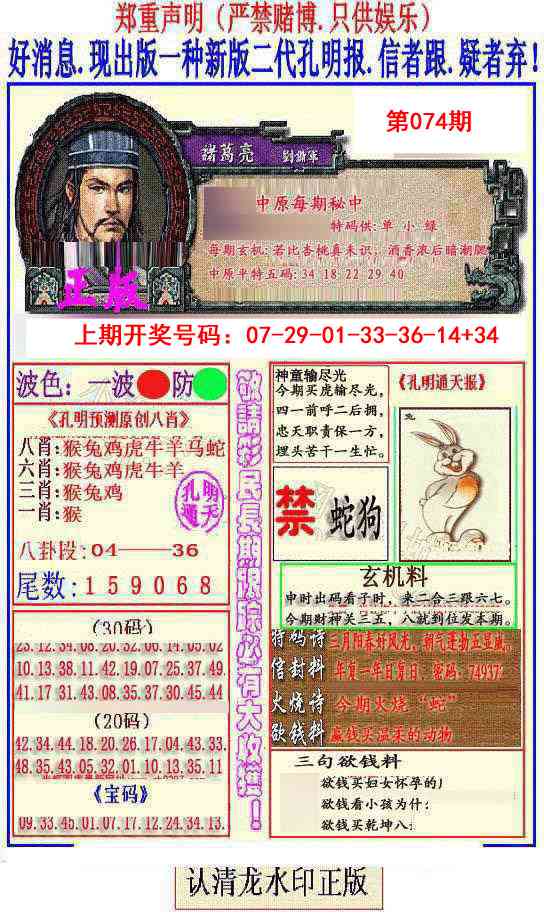 郑重声明（严禁赌博.只供娱乐）
好消息.现出版一种新版二代孔明报.信者跟.疑者弃!
第074期
諸葛亮 劉謝軍
中原每期秘中
特码供:单 小 绿
每期玄机:若比杏桃真未识，酒香浓后暗潮腮
中原平特五码:34 18 22 29 40
正版
上期开奖号码：07-29-01-33-36-14+34
波色：一波 防
《孔明预测原创八肖》
八肖:猴兔鸡虎牛羊马蛇
六肖:猴兔鸡虎牛羊
三肖:猴兔鸡
一肖:猴
孔明
通天
八卦段:04——36
尾数:159068
(30码)
23.12.34.08.20.32.06.14.05.02
10.13.38.11.42.19.07.25.37.49
41.17.31.43.08.35.37.30.45.44
(20码)
42.34.44.18.20.26.17.04.43.33.
48.35.43.05.32.01.10.13.35.11
《宝码》
09.33.45.01.07.17.12.24.34.13.
敬請彩民長期跟踪必有大收獲！
神童输尽光
今期买虎输尽光，
四一前呼二后拥，
忠天职责保一方，
埋头苦干一生忙。
《孔明通天报》
兔
禁 蛇狗
玄机料
申时出码看子时，来二合三跟六七。
今期财神关三五，八就到位发本期。
特码诗 三月阳春好风光，朝气蓬勃五亚威。
信封料 年复一年日复日，密码：74937?
火烧诗 今期火烧“蛇”
欲钱料 赢钱买温柔的动物
三句欲钱料
欲钱买妇女怀孕的!
欲钱看小孩为什:
欲钱买乾坤八:
认清龙水印正版